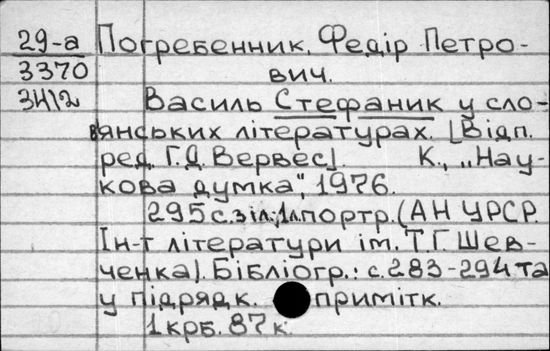 29-а Погребенник, Федір Петро-
3370 вич.
3412 Василь Стефаник у сло-
в'янських літературах. [Відп.
ред. Г.Д. Вервес]. К., „Нау-
кова думка", 1976.
295 с. з іл.; 1 л. портр. (АН УРСР.
Ін-т літератури ім. Т.Г. Шев-
ченка). Бібліогр.: с. 283-294 та
у підрядк. примітк.
1 крб. 87 к.